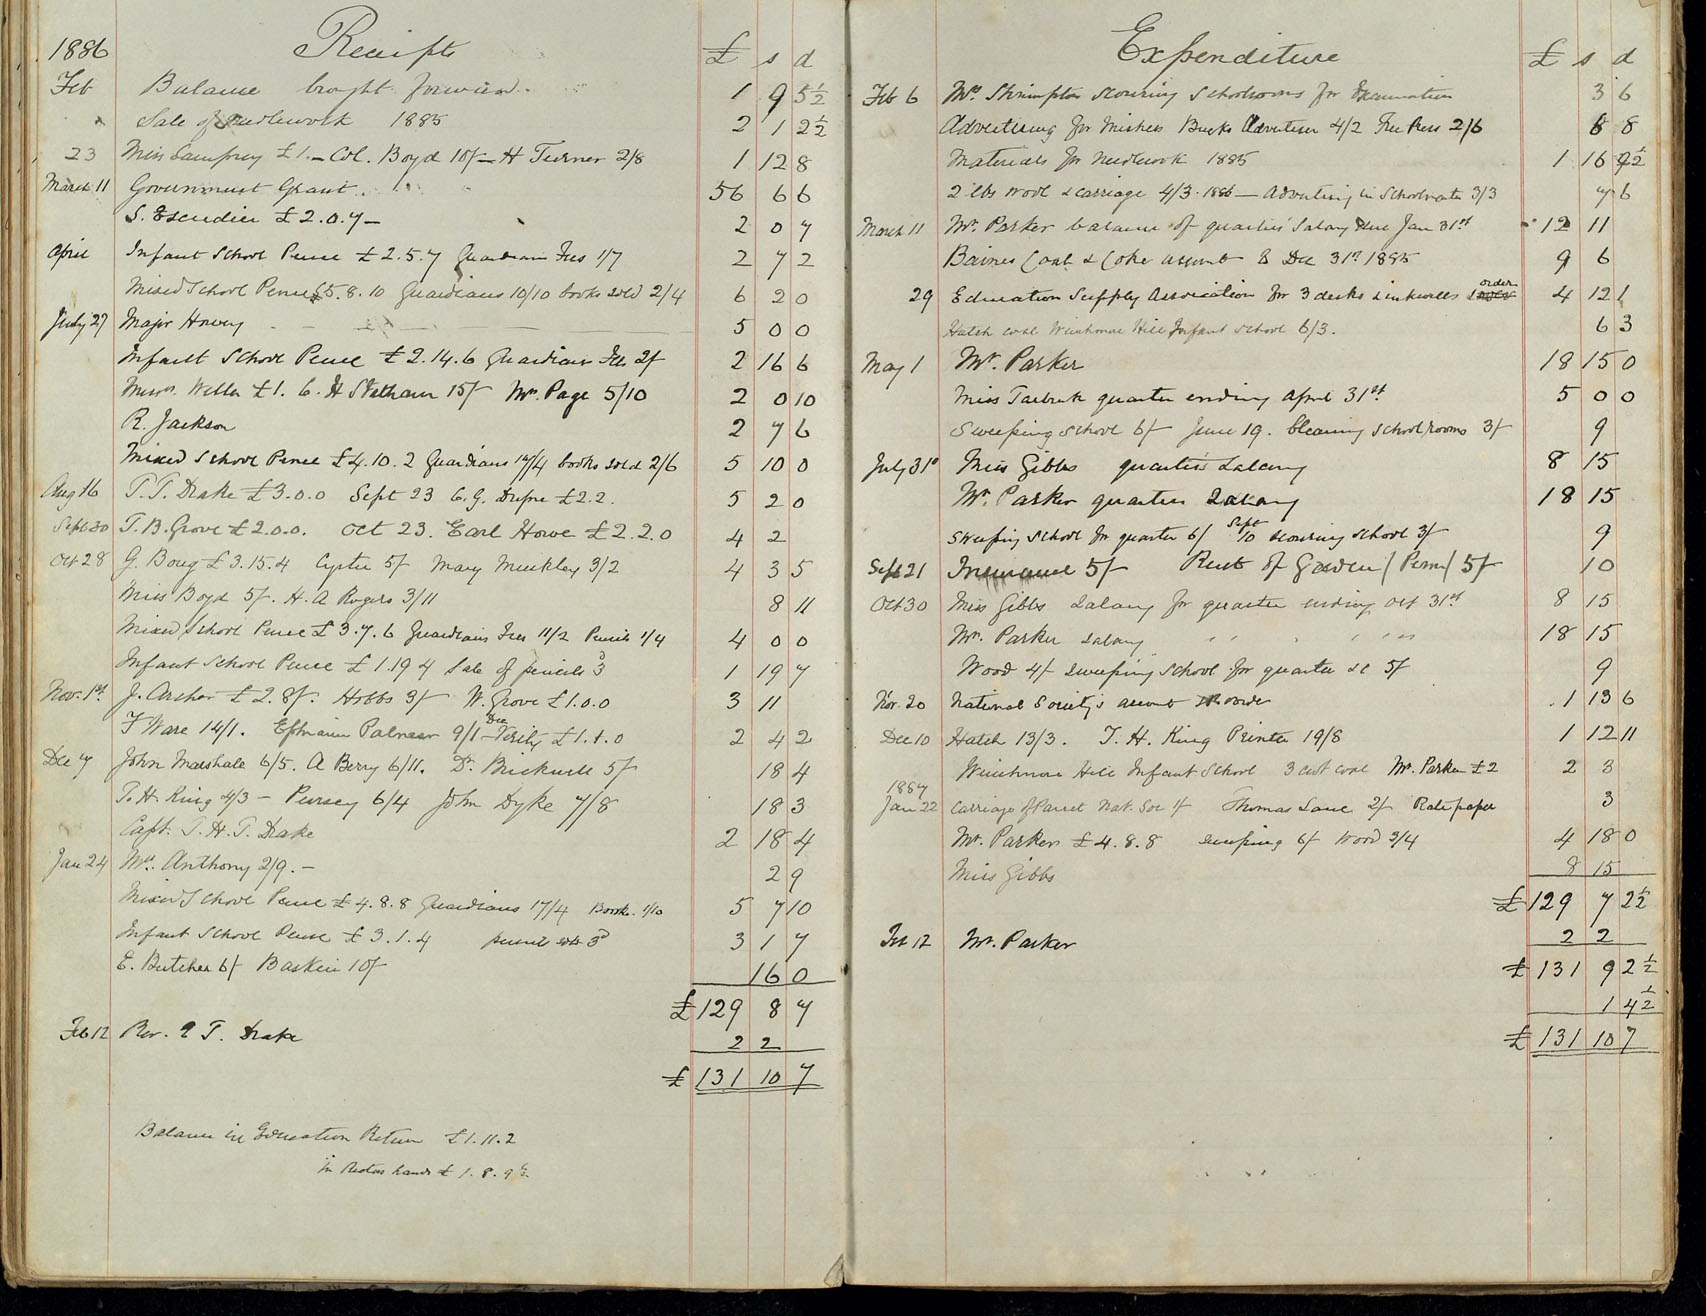 1886 Receipts £ s d
Feb Balance brought forward. 1 9 5½
Sale of Needlework 1885 2 1 2½
23 Miss £1. – Col. Boyd 10/– H Turner 2/8 1 12 8
March 11 Government Grant.. 56 6 6
S. Escudier £2.0.7– 2 0 7
April Infant School Pence £2.5.7 Guardian Fees 1/7 2 7 2
Mixed School Pence £5.8.10 Guardians 10/10 books sold 2/4 6 2 0
July 27 Major Howey 5 0 0
Infant School Pence £2.14.6 Guardian Fees 2/ 2 16 6
Messrs. Weller £1. C. H Statham 15/ Mr. Page 5/10 2 0 10
R. Jackson 2 7 6
Mixed School Pence £4.10.2 Guardians 17/4 books sold 2/6 5 10 0
Aug 16 T. T. Drake £3.0.0 Sept 23 C. G. Dupre £2.2. 5 2 0
Sept 30 T. B. Grove £2.0.0. Oct 23. Earl Howe £2.2.0 4 2
Oct 28 G. Boug £3.15.4 5/ Mary 3/2 4 3 5
Miss Boyd 5/. H. A Rogers 3/11 8 11
Mixed School Pence £3.7.6 Guardians Fees 11/2 Pencils 1/4 4 0 0
Infant School Pence £1.19 4 Sale of pencils 3d 1 19 7
Nov. 1st. J. Archer £2.8/. Hobbs 3/ W. Grove £1.0.0 3 11
F Ware 14/1. Ephraim Palmer 9/1 – Dec Verity £1.1.0 2 4 2
Dec 7 John Marshall 6/5. A Berry 6/11. Dr. Bicknell 5/ 18 4
T. H. King 4/3 – Pursey 6/4 John Dyke 7/8 18 3
Capt. T. H. T. Drake 2 18 4
Jan 24 Mrs. Anthony 2/9. – 2 9
Mixed School Pence £4.8.8 Guardians 17/4 Books. 1/10 5 7 10
Infant School Pence £3.1.4 3d 3 1 7
E. Butcher 6/ Baskin 10/ 16 0
£129 8 7
Feb 12 Rev. E T. Drake 2 2
£131 10 7
Balance in Education Return £1.11.2
in Rectors hands £1.8.9½
Expenditure £ s d
Feb 6 Mrs. Shrimpton scouring Schoolrooms for Examination 3 6
Advertising for Mistress Bucks Advertiser 4/2 Free Press 2/6 6 8
Materials for Needlework 1885 1 16 9½
2 lbs wool & carriage 4/3. 1886 – Advertising in Schoolmaster 3/3 7 6
March 11 Mr. Parker balance of quarters' Salary due Jan 31st 12 11
Baines Coal & Coke account to Dec 31st 1885 9 6
29 Education Supply Association for 3 desks & inkwells & order 4 12 1
Hatch coal Winchmore Hill Infant School 6/3. 6 3
May 1 Mr. Parker 18 15 0
Miss Tarbuck quarter ending April 31st. 5 0 0
Sweeping School 6/ June 19. Cleaning school/rooms 3/ 9
July 31st Miss Gibbs quarters Salary 8 15
Mr. Parker quarters Salary 18 15
Sweeping School for quarter 6/ Sept 10 scouring school 3/ 9
Sept 21 Insurance 5/ Rent of Garden (Penn) 5/ 10
Oct 30 Miss Gibbs Salary for quarter ending Oct 31st 8 15
Mr. Parker salary " " " " " 18 15
Wood 4/ sweeping School for quarter &c 5/ 9
Nov. 20 National Society's account 1 13 6
Dec 10 Hatch 13/3. T. H. King Printer 19/8 1 12 11
Winchmore Hill Infant School 3 cwt coal Mr. Parker £2 2 3
1887
Jan 22 Carriage of Parcel Nat. Soc 1/ Thomas Lane 2/ Ratepaper 3
Mr. Parker £4.8.8 sweeping 6/ Wood 3/4 4 18 0
Miss Gibbs 8 15
£129 7 2½
Feb 12 Mr. Parker 2 2
£131 9 2½
1 4½
£131 10 7